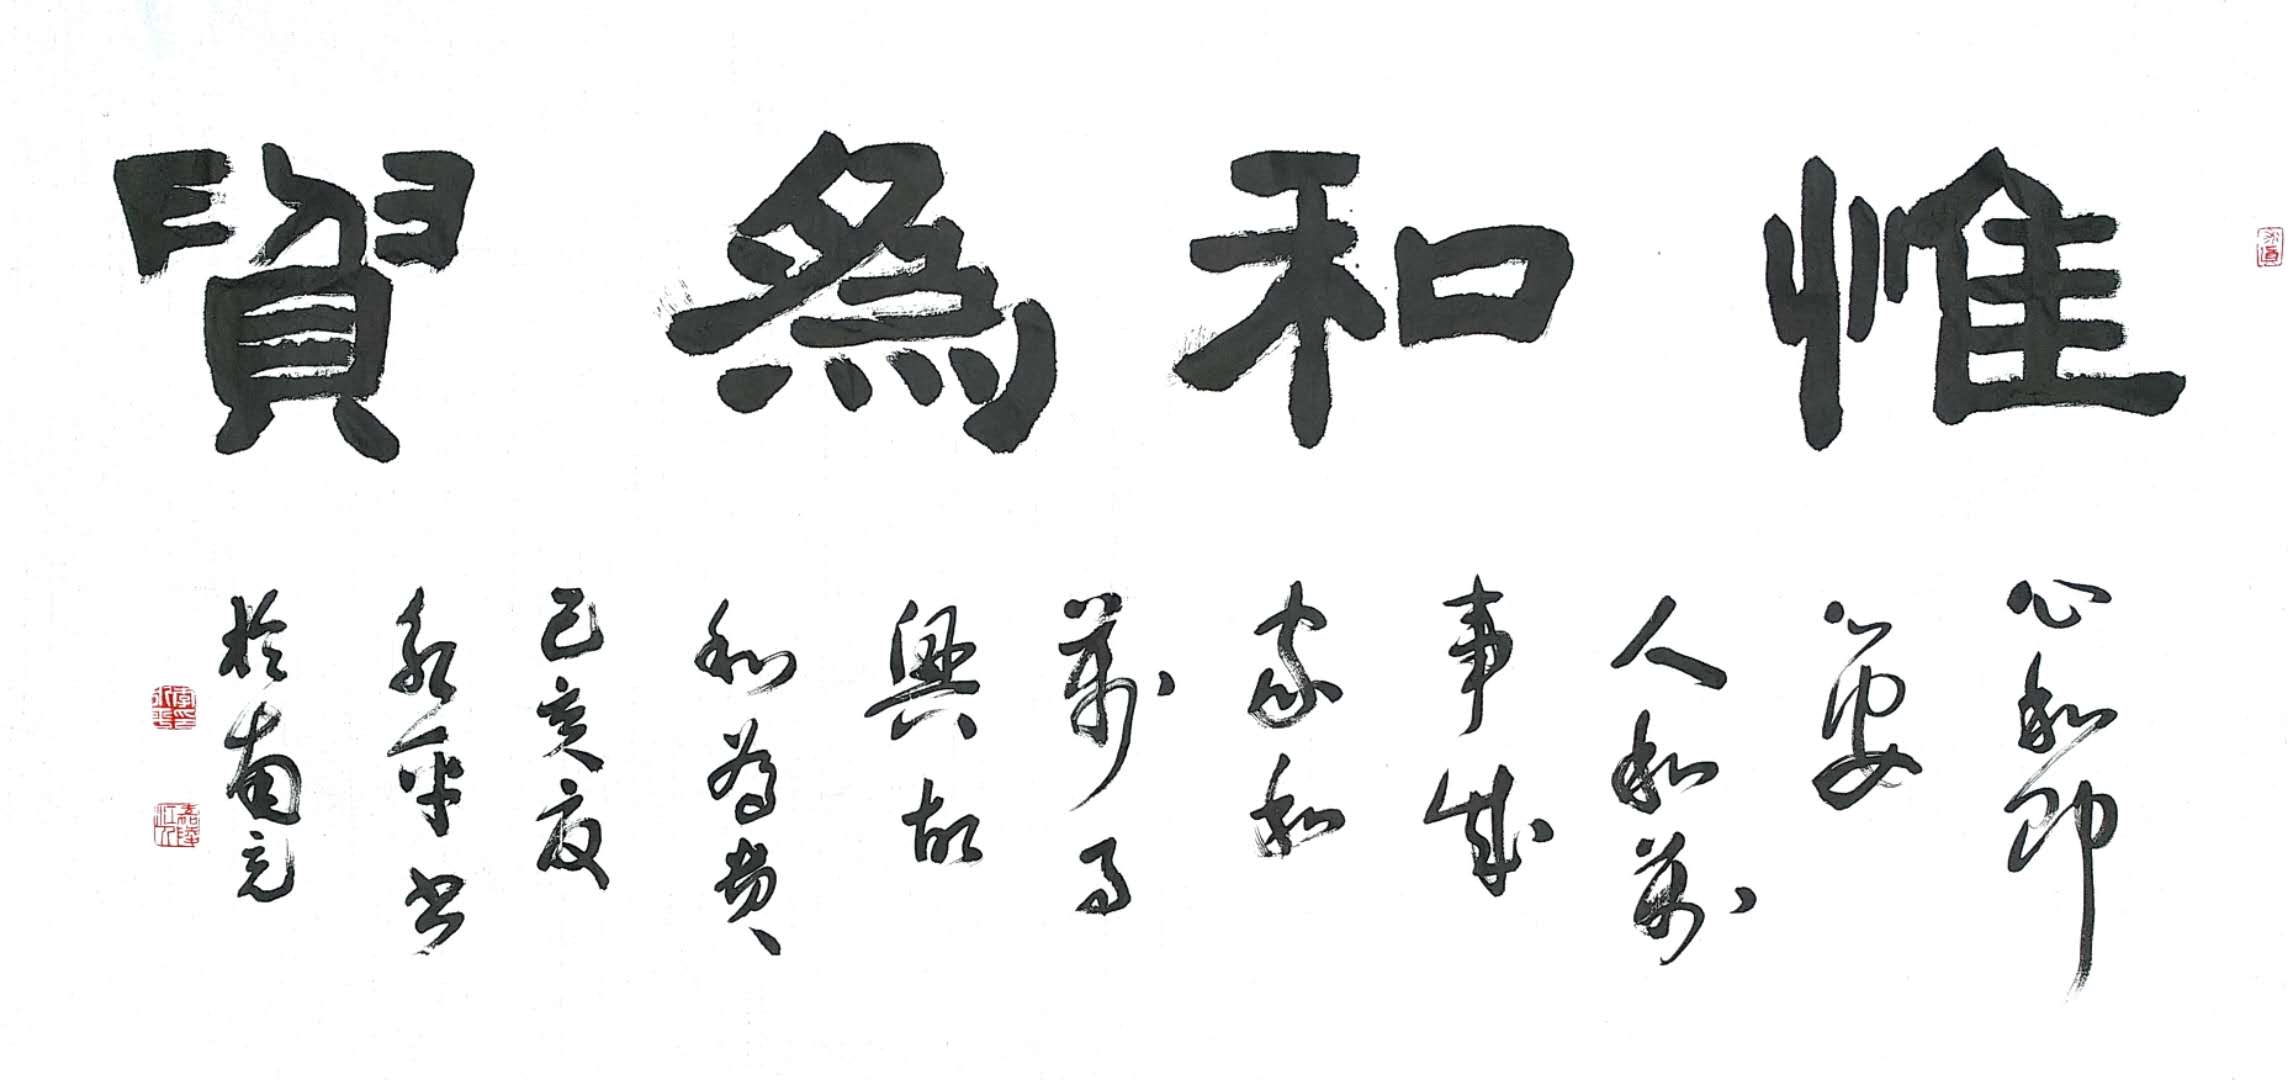 惟和為貴
心和即
心安
人和萬
事成
家和
萬事
興故
和為貴
己亥夏
永平書
於南充